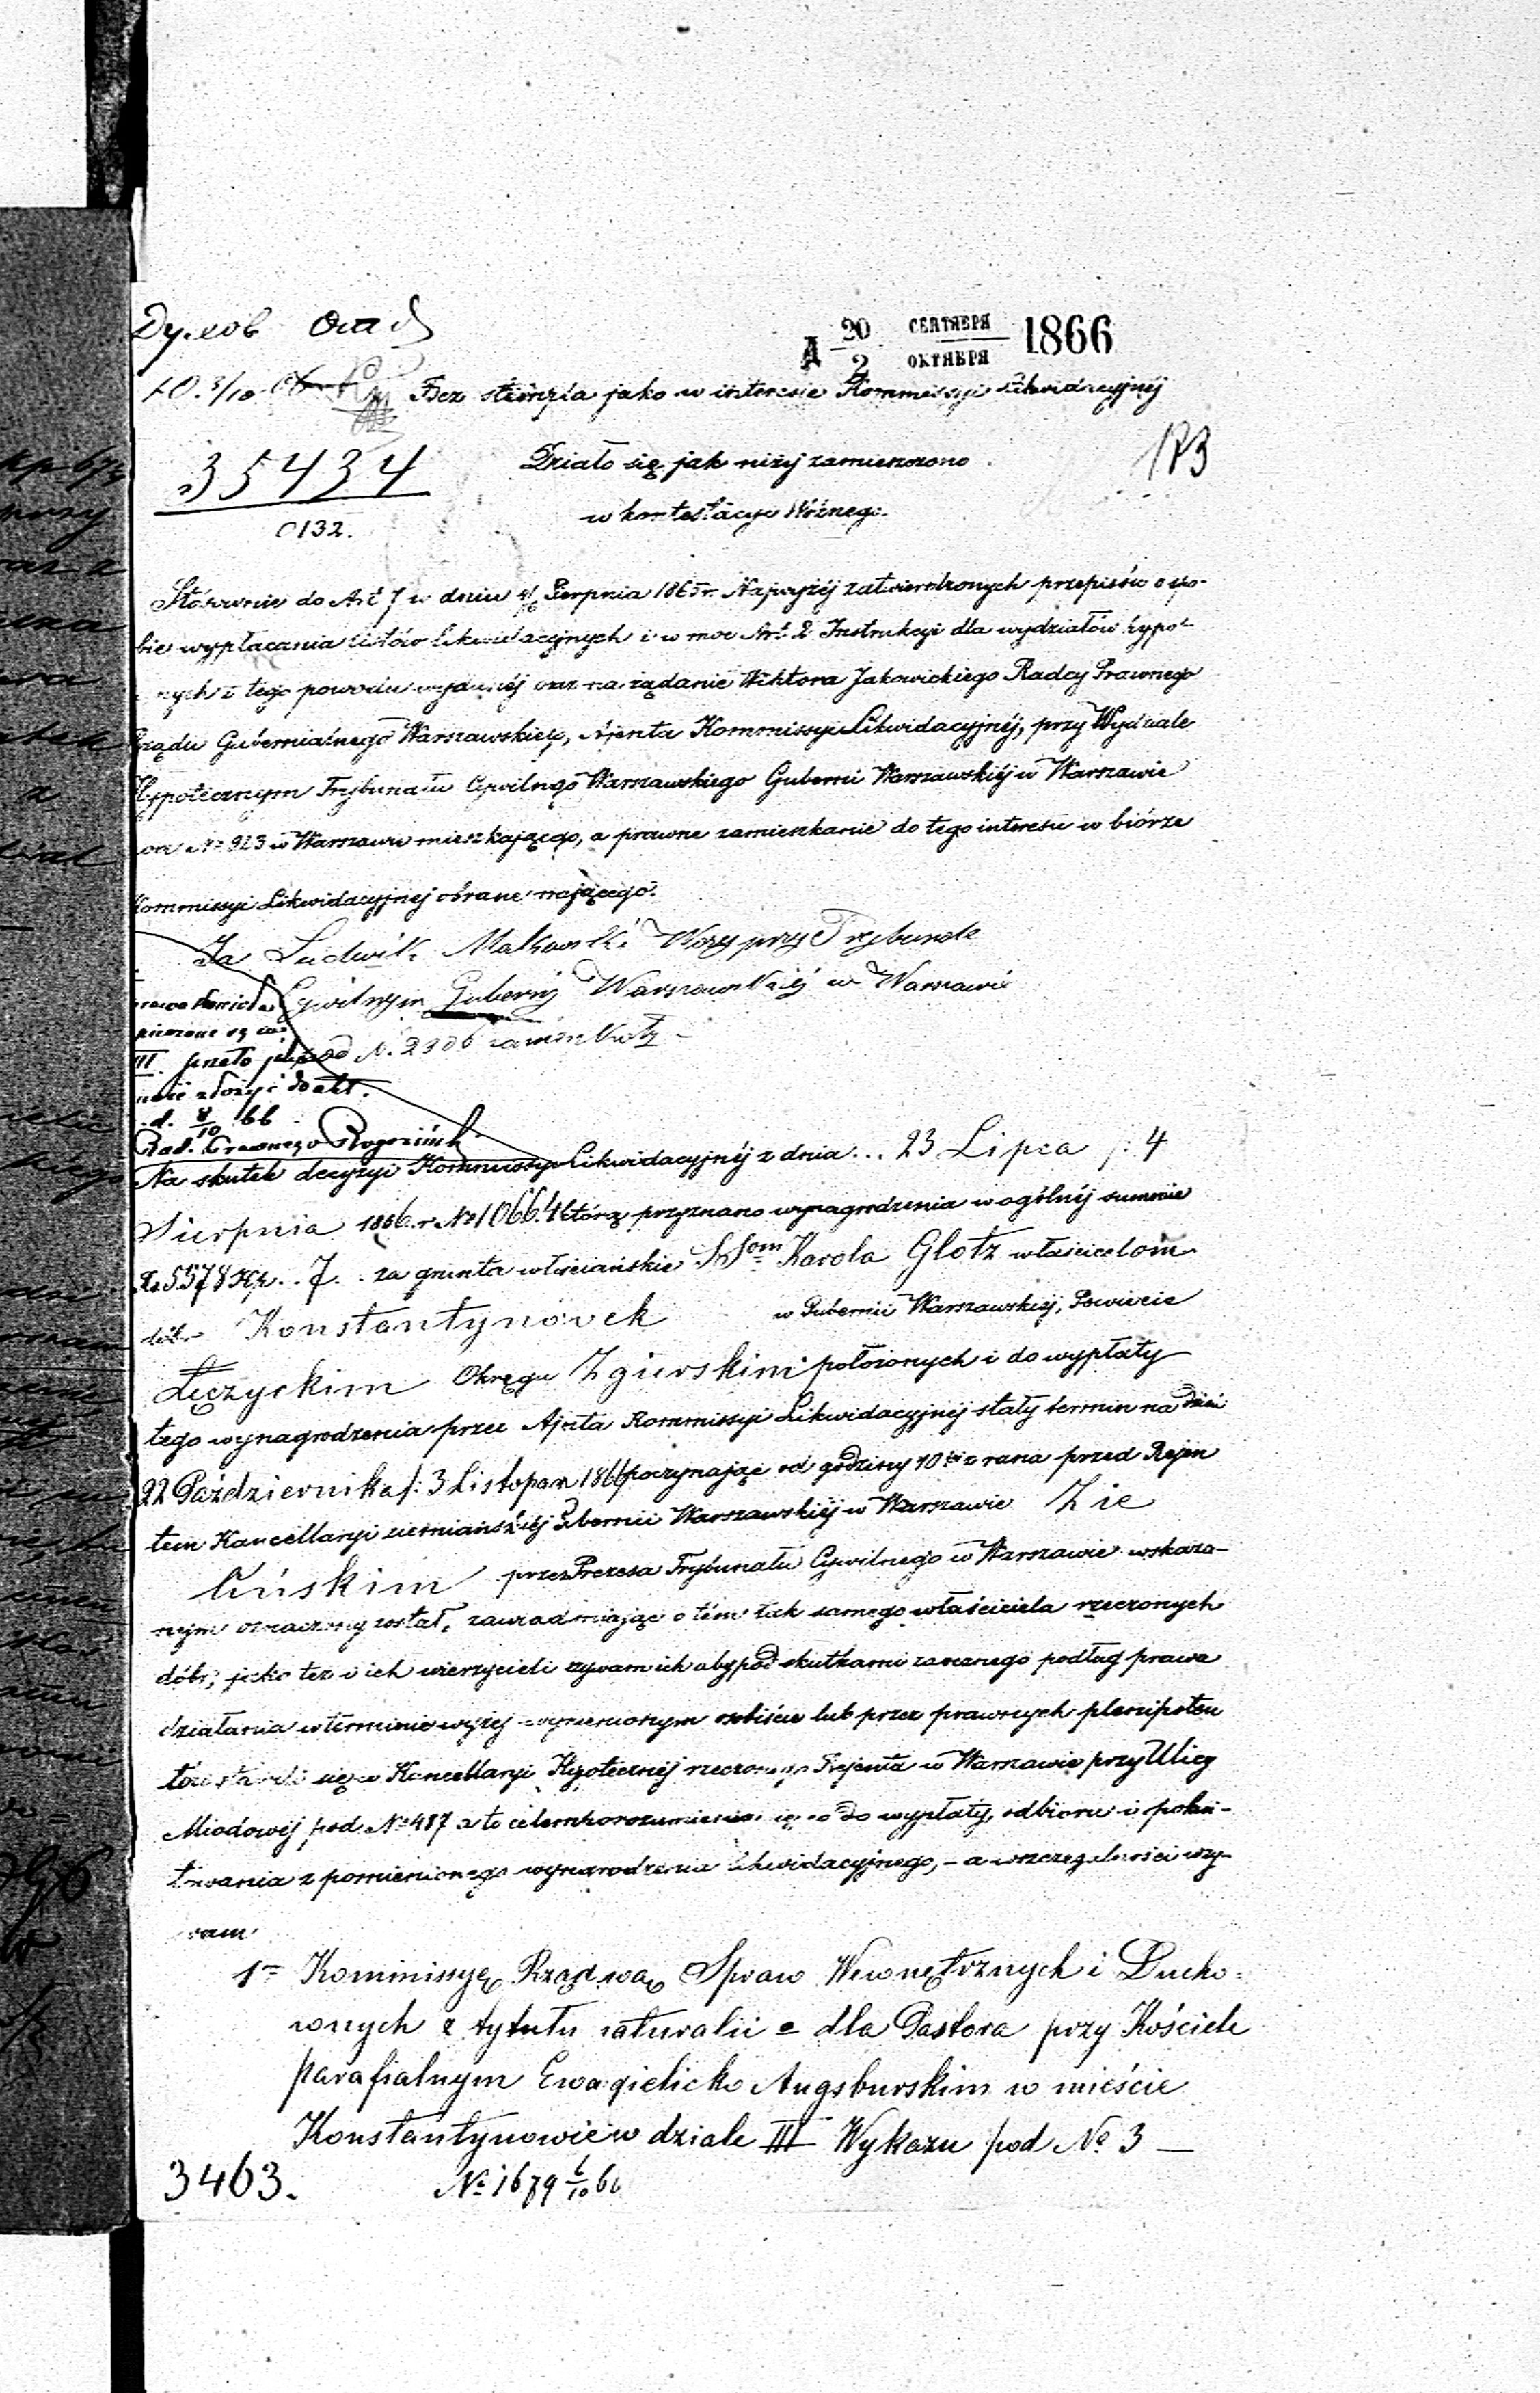 Д 20/2 СЕНТЯБРЯ ОКТЯБРЯ 1866
Bez stempla jako w interesie Kommissyi Likwidacyjnéj
173
35434
0132.
Działo się jak niżéj zamieszczono
w kontestacyi Woźnego.
Stósownie do Art 7 w dniu Sierpnia 1865 r. Najwyżéj zatwierdzonych przepisów o spo-
bie wypłacania listów likwidacyjnych i w moc Art. 2 Instrukcyi dla wydziałów hypo-
nych z tego powodu wydanéj oraz na żądanie Wiktora Jakowickiego Radcy Prawnego
Rządu Gubernialnego Warszawskiego, Ajenta Kommissyi Likwidacyjnéj, przy Wydziale
Hypotecznym Trybunału Cywilnego Warszawskiego Gubernii Warszawskiéj w Warszawie
No 923 w Warszawie mieszkającego, a prawne zamieszkanie do tego interesu w biórze
Kommissyi Likwidacyjnej obrane mającego.
Ja Ludwik Małkowski Woźny przy Trybunale
Cywilnym Gubernij Warszawskiéj w Warszawie
pod N. 2306 zamieszkały
III.
d. 8/10 66
Rad. Prawnego
Na skutek decyzyi Kommissyi Likwidacyjnéj z dnia .. 23 Lipca /: 4
Sierpnia 1866 r. No 10664 którą przyznano wynagrodzenia w ogólnéj summie
Rs 5578 Kp. . 7. . za grunta włościańskie SSom Karola Glotz właścicielom
dóbr Konstantynówek w Gubernii Warszawskiéj, Powiecie
Łęczyckim Okręgu Zgierskim położonych i do wypłaty
tego wynagrodzenia przez Ajenta Kommissyi Likwidacyjnéj stały termin na dzień
22 Października /: 3 Listopan 1866 poczynając od godziny 10 z rana przed Rejen
tem Kancellaryi ziemiańskiéj Gubernii Warszawskiéj w Warszawie Zie
lińskim przez Prezesa Trybunału Cywilnego w Warszawie wskaza-
nym oznaczony został, zawiadamiając o tém tak samego właściciela rzeczonych
dóbr, jako też i ich wierzycieli wzywam ich aby pod skutkami zaocznego podług prawa
działania w terminie wyżej wymienionym osobiście lub przez prawnych plenipoten
tów stawili się w Kancellaryi Hypotecznéj rzeczonego Rejenta w Warszawie przy Ulicy
Miodowéj pod No 487 a to celem porozumienia się co do wypłaty, odbioru i pokwi-
towania z pomienionego wynagrodzenia likwidacyjnego, – a w szczególności wzy-
wam
1= Kommissyę Rządową Spraw Wewnętrznych i Ducho=
wnych z tytułu naturalii dla Pastora przy Kościele
parafialnym Ewagielicko Augsburskim w mieście
Konstantynowie w dziale III Wykazu pod No 3 —
3463. No 1679 6/10 66